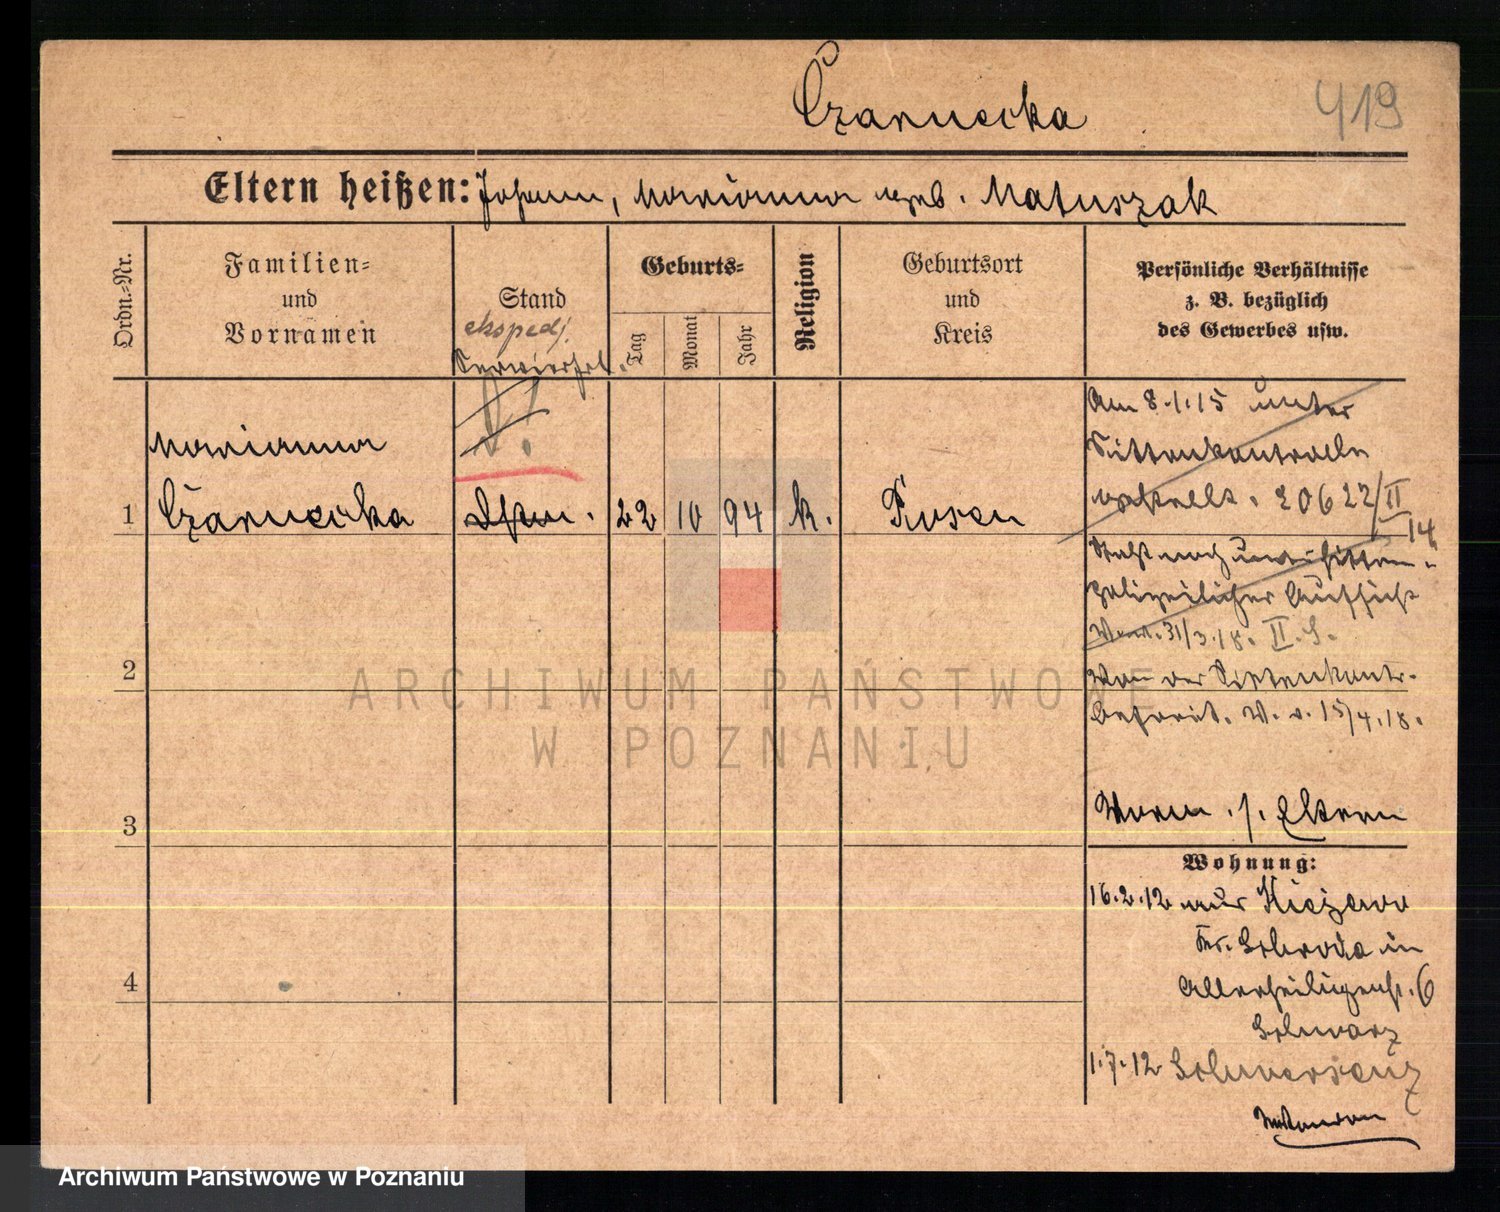 Czarnecka 419
Eltern heißen: Johann, Marianna geb. Matuszak
Ordn.-Nr.
Familien-
und
Vornamen
Stand
ekspedj.
Servierfrl.
Geburts-
Tag
Monat
Jahr
Religion
Geburtsort
und
Kreis
Persönliche Verhältnisse
z. B. bezüglich
des Gewerbes usw.
Marianna
1 Czarnecka 22 10 94 k. Posen
Am 8.1.15 unter
Sittenkontrolle
gestellt. 20622/II
14
Steht noch unter sitten-
polizeilicher Aufsicht
31/3.18. II. S.
Von der Sittenkontr.
befreit. V. v. 15/4.18.
2
3
Worm. s. Eltern
Wohnung:
16.2.12 aus Kiszewo
Kr. Schroda in
Allerheiligenst. 6
Schwarz
4
1.7.12 Schwersenz
ARCHIWUM PAŃSTWOWE
W POZNANIU
Archiwum Państwowe w Poznaniu